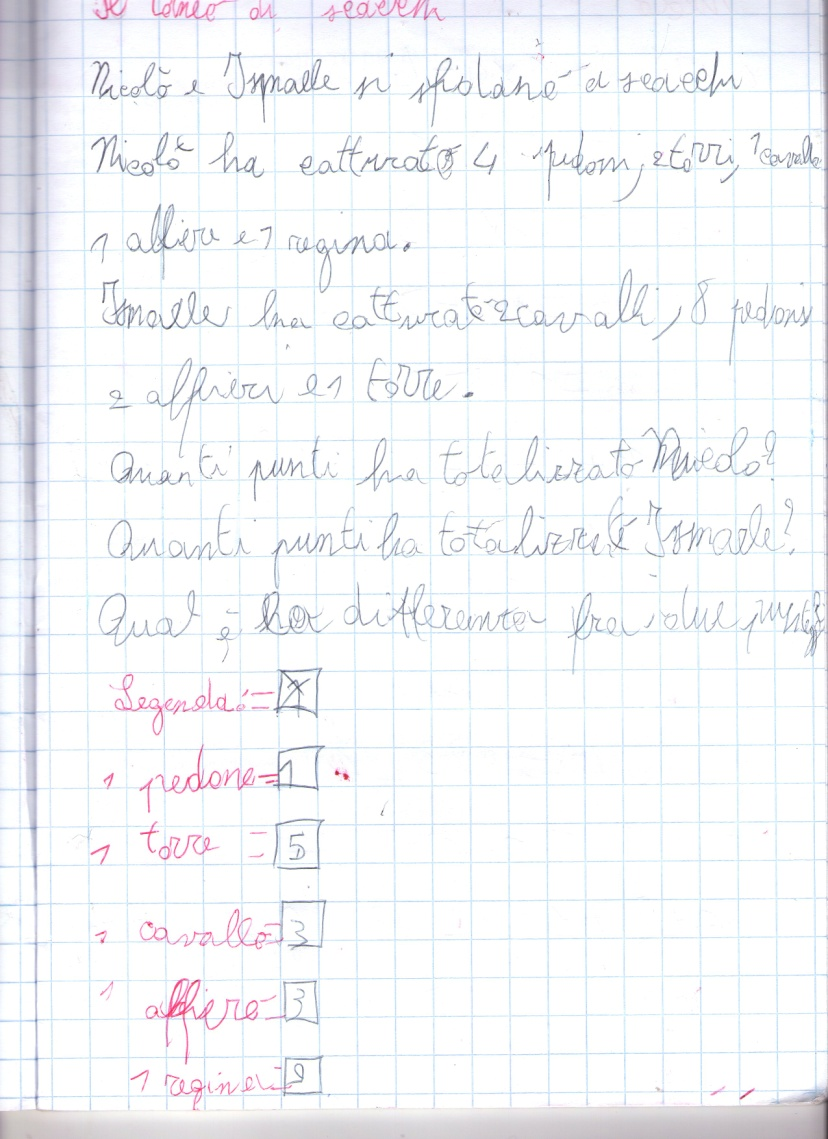 Il torneo di scacchi
Nicolò e Ismaele si sfidano a scacchi
Nicolò ha catturato 4 pedoni, 2 torri, 1 cavallo
1 alfiere e 1 regina.
Ismaele ha catturato 2 cavalli, 8 pedoni
2 alfieri e 1 torre.
Quanti punti ha totalizzato Nicolò?
Quanti punti ha totalizzato Ismaele?
Qual è la differenza fra i due punteggi
Legenda:=
1 pedone=1
1 torre = 5
1 cavallo=3
1 alfiere=3
1 regina=9